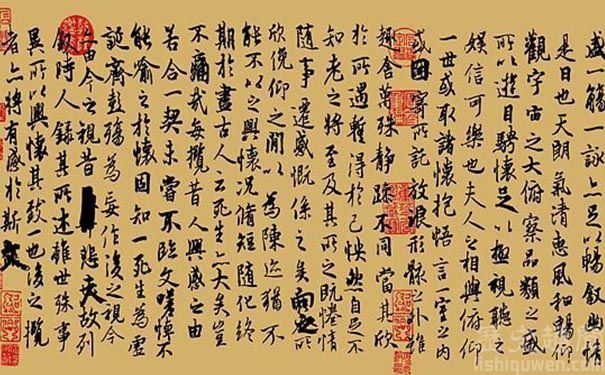 盛一觴一詠亦足以暢敘幽情
是日也天朗氣清惠風和暢仰
觀宇宙之大俯察品類之盛
所以遊目騁懷足以極視聽之
娛信可樂也夫人之相與俯仰
一世或取諸懷抱悟言一室之內
或因寄所託放浪形骸之外雖
趣舍萬殊靜躁不同當其欣
於所遇暫得於己怏然自足不
知老之將至及其所之既惓情
隨事遷感慨係之矣向之所
欣俛仰之閒以為陳迹猶不
能不以之興懷況脩短隨化終
期於盡古人云死生亦大矣豈
不痛哉每攬昔人興感之由
若合一契未嘗不臨文嗟悼不
能喻之於懷固知一死生為虛
誕齊彭殤為妄作後之視今
亦由今之視昔悲夫故列
敘時人錄其所述雖世殊事
異所以興懷其致一也後之攬
者亦將有感於斯文
历史趣闻
lishiquwen.com